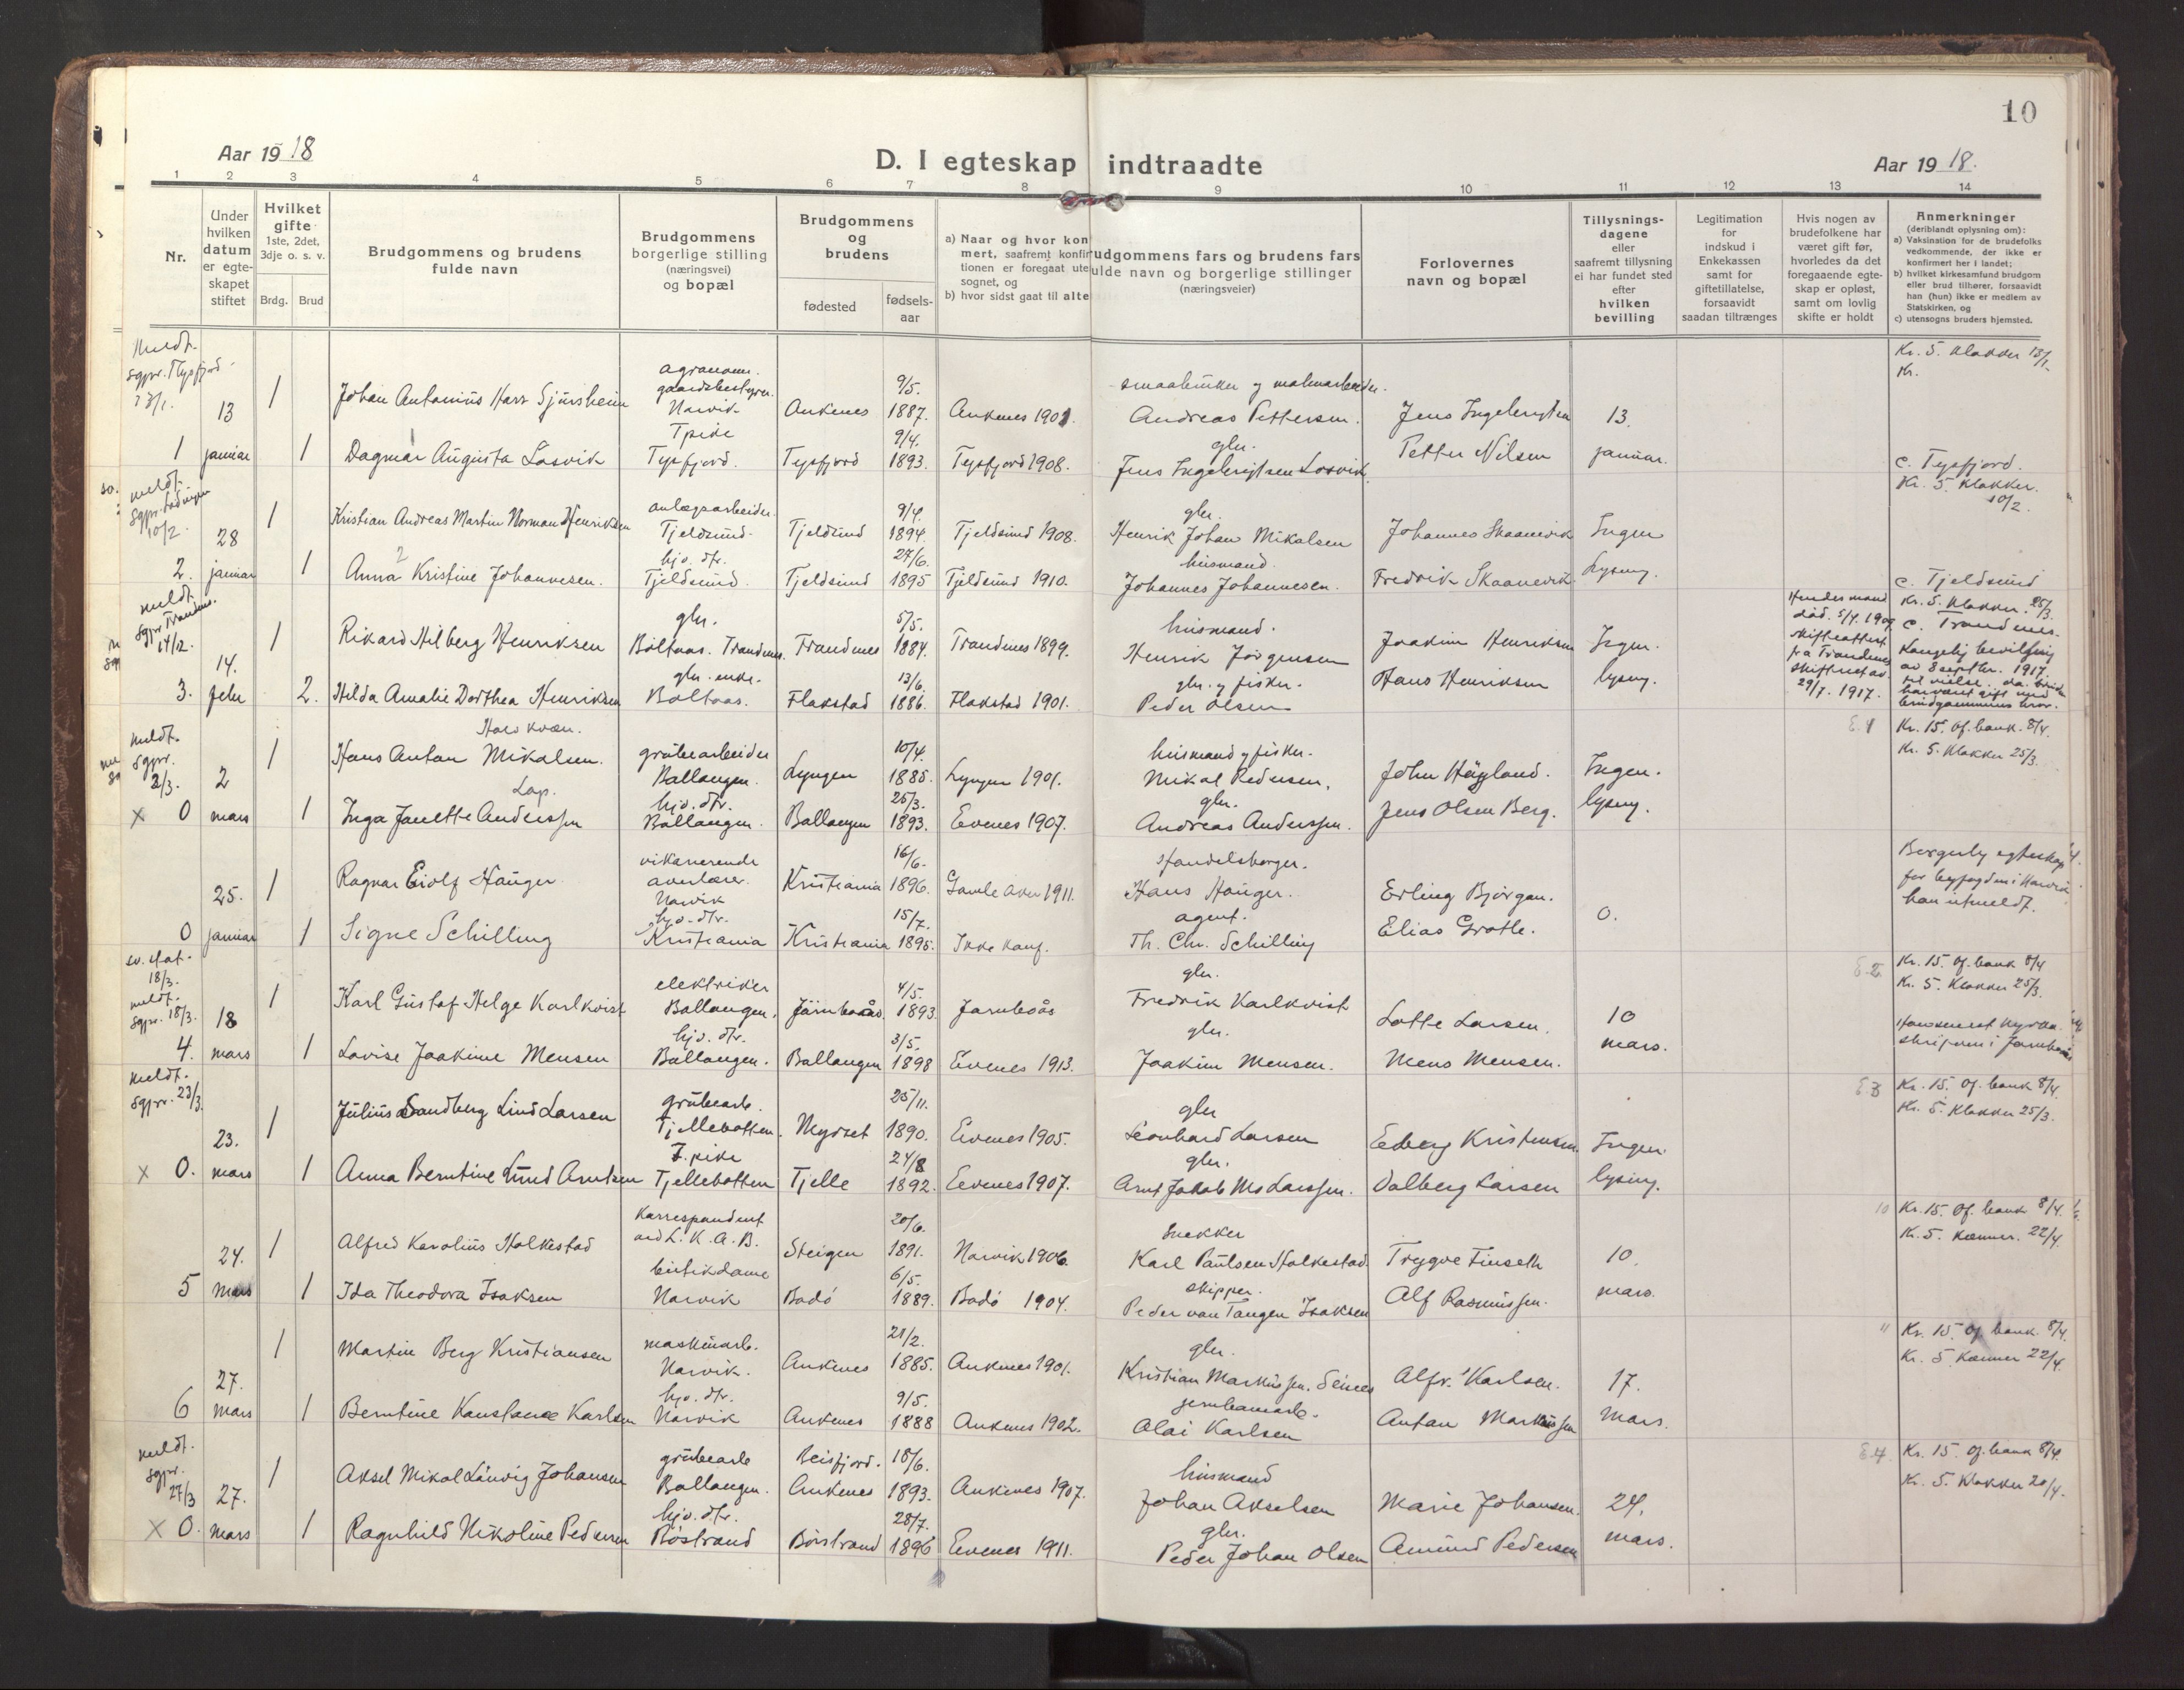 10
Aar 19 18
D. I egteskap indtraadte
Aar 19 18.
1 2 3 4 5 6 7 8 9 10 11 12 13 14
Nr.
Under hvilken datum er egteskapet stiftet
Hvilket gifte
1ste, 2det, 3dje o. s. v.
Brdg. Brud
Brudgommens og brudens fulde navn
Brudgommens borgerlige stilling (næringsvei) og bopæl
Brudgommens og brudens
fødested
fødsels-aar
a) Naar og hvor kon
mert, saafremt konfir
tionen er foregaat ute
sognet, og
b) hvor sidst gaat til alte
udgommens fars og brudens fars
ulde navn og borgerlige stillinger
(næringsveier)
Forlovernes navn og bopæl
Tillysnings-dagene eller saafremt tillysning ei har fundet sted efter hvilken bevilling
Legitimation for indskud i Enkekassen samt for giftetillatelse, forsaavidt saadan tiltrænges
Hvis nogen av brudefolkene har været gift før, hvorledes da det foregaaende egteskap er opløst, samt om lovlig skifte er holdt
Anmerkninger
(deriblandt oplysning om):
a) Vaksination for de brudefolks vedkommende, der ikke er konfirmert her i landet;
b) hvilket kirkesamfund brudgom eller brud tilhører, forsaavidt han (hun) ikke er medlem av Statskirken, og
c) utensogns bruders hjemsted.
meldt. sgpr. Tysfjord
agronom. gaardsbestyrer. 9/5. Kr. 5. Klokker 13/1.
13 1 Johan Antonius Narvik Ankenes 1887. Ankenes 1901. Andreas Pettersen. 13.
1 januar 1 Dagmar Augusta Losvik Tpike Tysfjord. Tysfjord 9/4. 1893. Tysfjord 1908. gbr. Jens Ingebrigtsen Losvik. Petter Nilsen januar. c. Tysfjord.
meldt. sgpr. 10/2. Kr. 5. Klokker. 10/2.
28 1 Kristian Andreas Martin Norman Henriksen anlægsarbeider. Tjeldsund. Tjeldsund 9/4. 1894. Tjeldsund 1908. gbr. Henrik Johan Mikalsen Johannes Skaanevik Ingen
2. januar 1 Anna Kristine Johannesen. hjv. dtr. Tjeldsund. Tjeldsund 27/6. 1895 Tjeldsund 1910. husmand. Johannes Johannesen. Fredrik Skaanevik lysing. c. Tjeldsund
meldt. sgpr. Trandenes. 14/2. Hendes mand død. 5/4. 1909. Kr. 5. Klokker. 25/3.
14. 1 Rikard Hilberg Henriksen gbr. Boltaas. Trandenes. Trandenes 5/5. 1884. Trandenes 1899. husmand. Henrik Jørgensen Joakim Henriksen Ingen. skifteattest fra Trandenes c. Trandenes. Kongelig bevilling av 8 septbr. 1917.
3. febr 2. Hilda Amalie Dorthea Henriksen gbr. enke. Boltaas. Flakstad 13/6. 1886. Flakstad 1901. gbr. y fisker. Peder Olsen Hans Henriksen lysing. 29/7. 1917. til vielse da bruden har været gift med brudgommens bror.
meldt. sgpr. 2/3. Kr. 15. Of. bank. 8/4.
2 1 Hans Anton Mikalsen. grubearbeider Ballangen. Lyngen 10/4. 1885. Lyngen 1901. husmand y fisker. Mikal Pedersen. John Høyland. Ingen. Kr. 5. Klokker 25/3.
x 0 mars 1 Lap. Inga Janette Anderssen hjv. dtr. Ballangen. Ballangen 25/3. 1893. Evenes 1907. gbr. Andreas Anderssen. Jens Olsen Berg. lysing.
25. 1 Ragnar Eiolf Hauger vikarierende Narvik Kristiania 16/6. 1896. Gamle Aker 1911. Handelsborger. Hans Hauger. Erling Bjørgan. Borgerlig egteskap for byfogden i Narvik han utmeldt.
0 januar 1 Signe Schilling hjv. dtr. Kristiania Kristiania 15/7. 1895. Ikke konf. agent. Th. Chr. Schilling Elias Grotle. 0.
18/3. meldt. sgpr. 18/3. E 2. Kr. 15. Of. bank 8/4
18 1 Karl Gustaf Helge Karlkvist elektriker Ballangen. Järnboås. 4/5. 1893. Jarnboås gbr. Fredrik Karlkvist Lotte Larsen. 10 Kr. 5. Klokker 25/3.
4. mars 1 Lovise Joakime Mensen hjv. dtr. Ballangen. Ballangen 3/5. 1898 Evenes 1913. gbr. Joakim Mensen. Mens Mensen. mars.
meldt. sgpr. 23/3. E 3 Kr. 15. Of. bank 8/4.
23. 1 Julius Sandberg Lind Larsen grubearb. Tjellebotten. 25/11. 1890. Evenes 1905. gbr Leonhard Larsen Edberg Kristensen. Ingen. Kr. 5. Klokker 25/3.
x 0. mars 1 Anna Berntine Lund Arntsen T. pike Tjellebotten Tjelle 24/8 1892. Evenes 1907. gbr. Arnt Jakob Larssen. Dalberg Larsen lysing.
24. 1 Alfred Karolius Holkestad Korrespondent ved L. K. A. B. Steigen 20/6. 1891. Narvik 1906. Snekker Karl Paulsen Holkestad. Trygve Finseth 10. 10 Kr. 15. Of. bank 8/4. Kr. 5. Kæmner. 22/4.
5 mars 1 Ida Theodora Isaksen butikdame Narvik Bodö 6/5. 1889. Bodö 1904. skipper. Peder von Tangen Isaksen Alf Rasmussen. mars.
27. 1 Martin Berg Kristiansen maskinarb. Narvik. Ankenes 21/2. 1885. Ankenes 1901. gbr. Kristian Markussen. Seines Alfr. Karlsen. 17. 11 Kr. 15. Of. bank. 8/4. Kr. 5. Kæmner 22/4.
6 mars 1 Berntine Konstance Karlsen hjv. dtr. Narvik Ankenes 9/5. 1888 Ankenes 1902. jernbanearb. Olai Karlsen Anton Markussen Mars.
meldt. sgpr. 27/3 E 4. Kr. 15. Of. bank 8/4.
27. 1 Aksel Mikal Ludvig Johansen grubearb Ballangen. Beisfjord. Ankenes 18/6. 1893. Ankenes 1907. husmand Johan Akselsen Marie Johansen. 24. Kr. 5. Klokker 20/4.
x 0. mars 1 Ragnhild Nikoline Pedersen hjv. dtr. Böstrand Börstrand 28/7. 1896 Evenes 1911. gbr. Peder Johan Olsen Amund Pedersen mars.